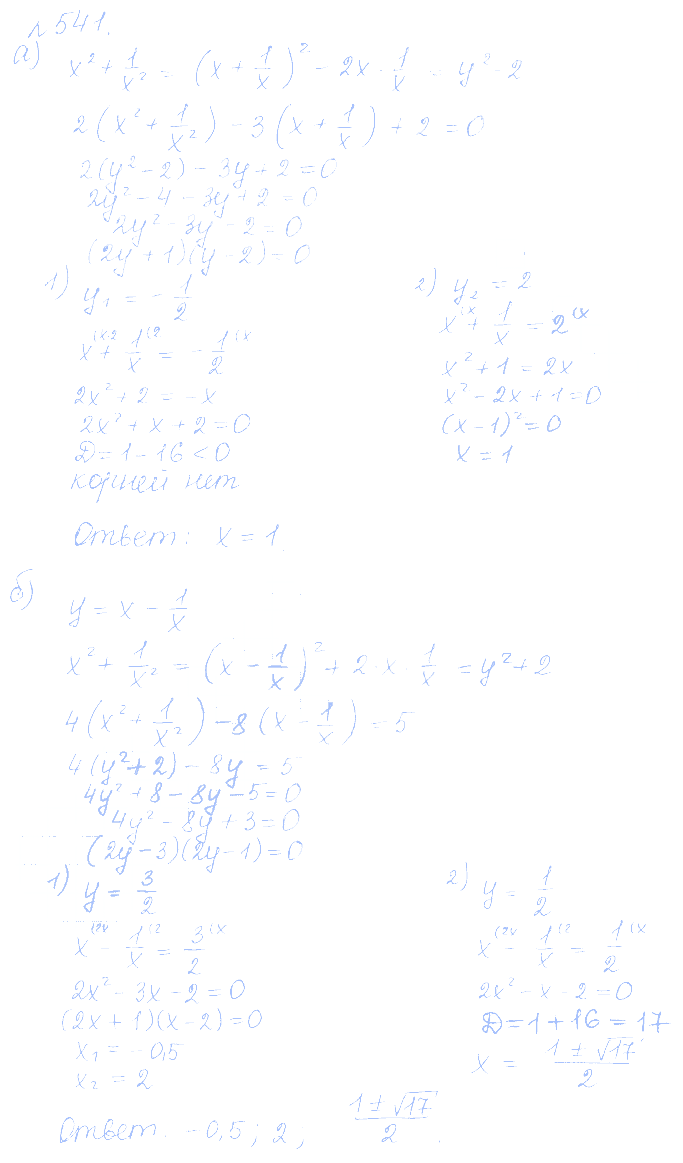 № 541.
а) x² + 1/x² = (x + 1/x)² - 2x · 1/x = y² - 2
2(x² + 1/x²) - 3(x + 1/x) + 2 = 0
2(y² - 2) - 3y + 2 = 0
2y² - 4 - 3y + 2 = 0
2y² - 3y - 2 = 0
(2y + 1)(y - 2) = 0
1) y₁ = - 1/2
x⁽ˣ² + 1/x⁽² = - 1/2⁽ˣ
2x² + 2 = -x
2x² + x + 2 = 0
D = 1 - 16 < 0
корней нет
2) y₂ = 2
x⁽ˣ + 1/x = 2⁽ˣ
x² + 1 = 2x
x² - 2x + 1 = 0
(x - 1)² = 0
x = 1
Ответ: x = 1.
б) y = x - 1/x
x² + 1/x² = (x - 1/x)² + 2 · x · 1/x = y² + 2
4(x² + 1/x²) - 8(x - 1/x) = 5
4(y² + 2) - 8y = 5
4y² + 8 - 8y - 5 = 0
4y² - 8y + 3 = 0
(2y - 3)(2y - 1) = 0
1) y = 3/2
x⁽²ˣ - 1/x⁽² = 3/2⁽ˣ
2x² - 3x - 2 = 0
(2x + 1)(x - 2) = 0
x₁ = -0,5
x₂ = 2
2) y = 1/2
x⁽²ˣ - 1/x⁽² = 1/2⁽ˣ
2x² - x - 2 = 0
D = 1 + 16 = 17
x = (1 ± √17)/2
Ответ: -0,5; 2; (1 ± √17)/2.